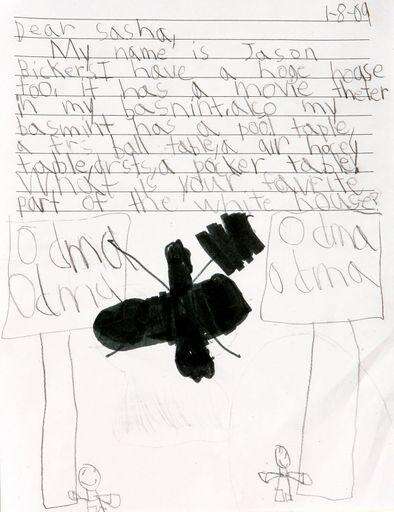 1-8-09
Dear sasha,
My name is Jason
Bickers I have a hoge house
too. it has a movie theter
in my basnint, also my
basmint has a pool table,
a air hocky
table, a pocker table.
What is your favrite
part of the white house?
Odma Odma
Odma Odma